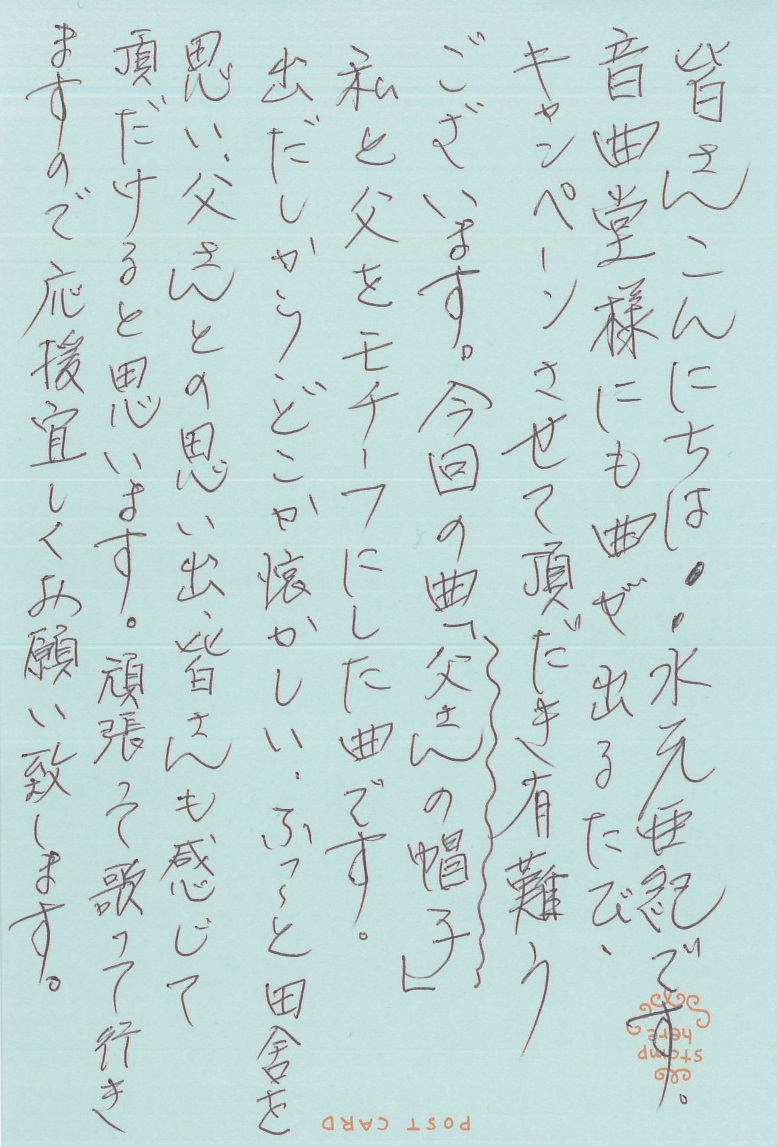 皆さんこんにちは・・水元亜紀です。
音曲堂様にも曲が出るたび、
キャンペーンさせて頂だき有難う
ございます。今回の曲「父さんの帽子」
私と父をモチーフにした曲です。
出だしからどこか懐かしい、ふっと田舎を
思い、父さんとの思い出、皆さんも感じて
頂だけると思います。頑張って歌って行き
ますので応援宜しくお願い致します。
stamp
here
POST CARD